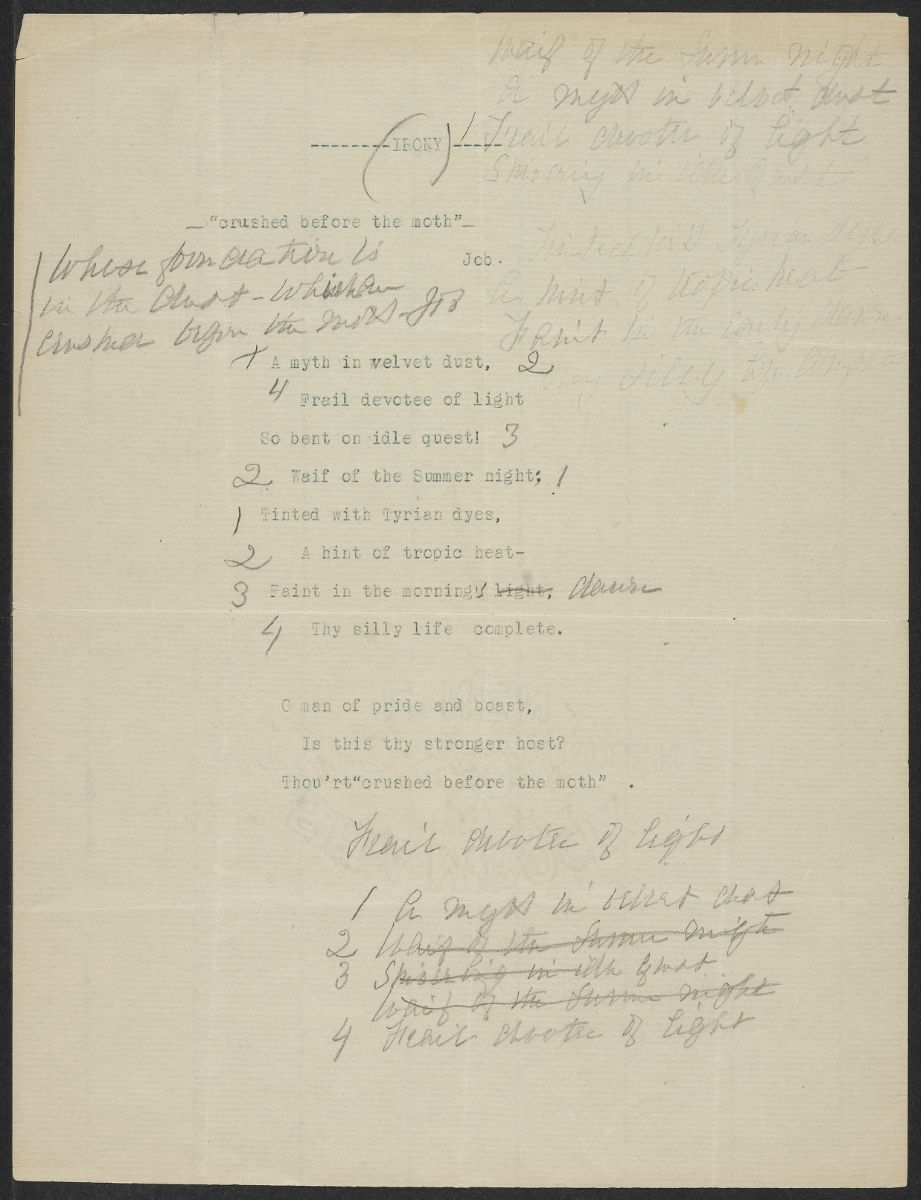 Waif of the Summ night
A myth in velvet dust
Frail devotee of light
in idle quest
--------(IRONY)-----
"crushed before the moth"
Job.
Whose foundation is
in the dust - Which are
crushed before the moth - Job
Tinted with Tyrian dyes
A hint of tropic heat
Faint in the early dawn
silly life
A myth in velvet dust, 2
4 Frail devotee of light
So bent on idle quest! 3
2 Waif of the Summer night; 1
1 Tinted with Tyrian dyes,
2 A hint of tropic heat-
3 Faint in the morning's light, dawn
4 Thy silly life complete.
O man of pride and boast,
Is this thy stronger host?
Thou'rt"crushed before the moth" .
Frail devotee of light
1 A myth in velvet dust
2 Waif of the Summ night
3 in idle quest
Waif of the Summ night
4 Frail devotee of light